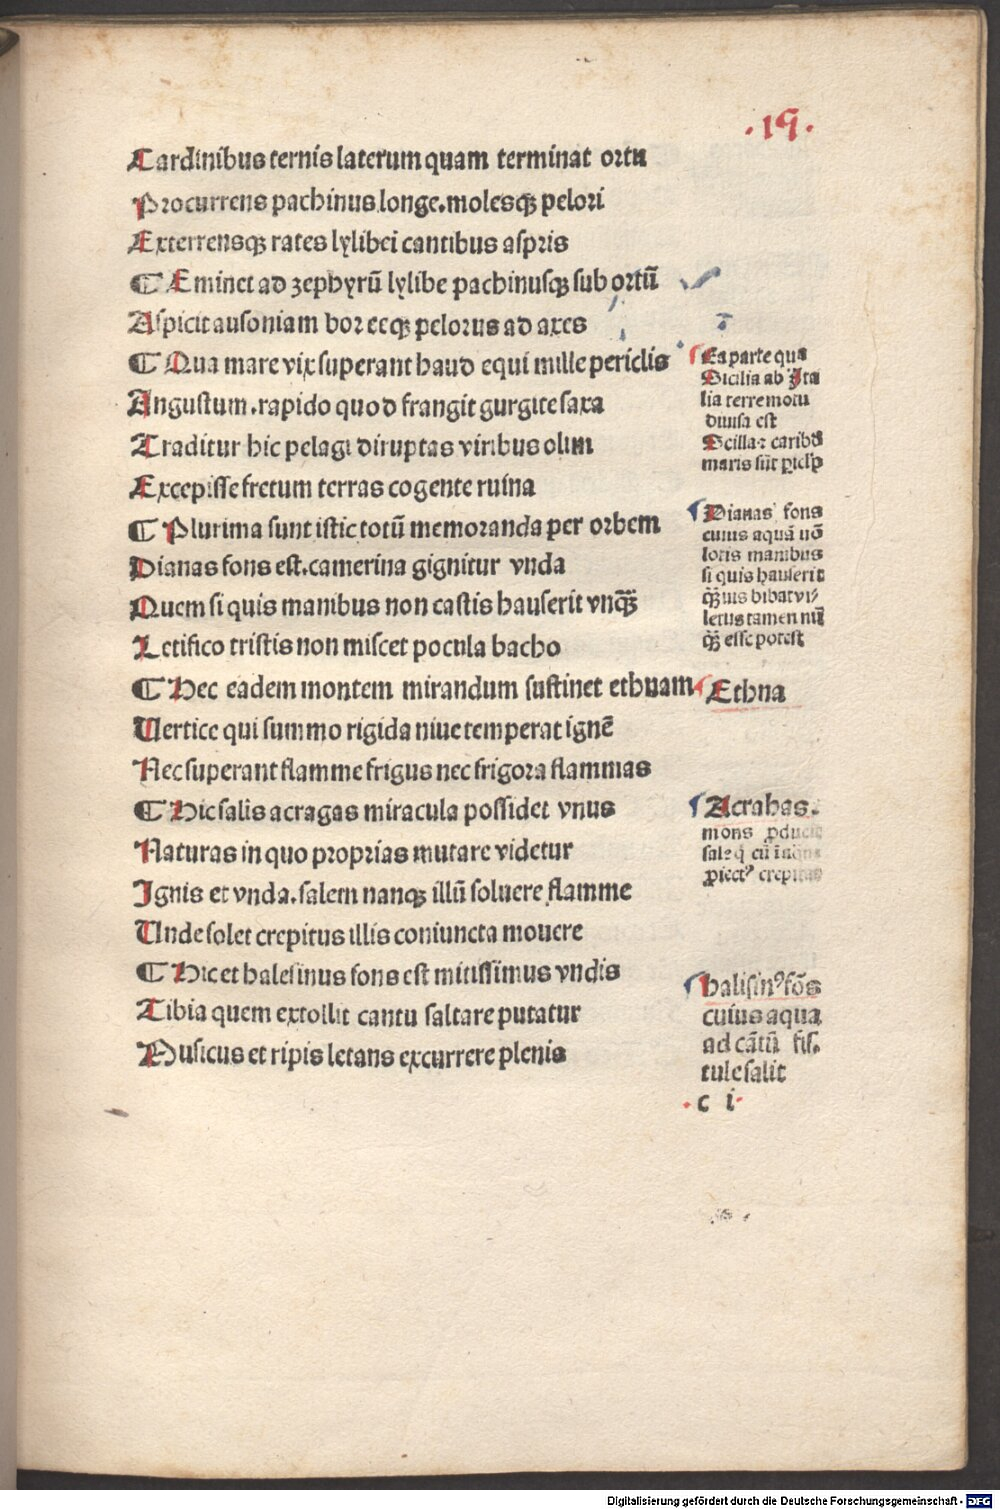 .19.
Cardinibus ternis laterum quam terminat ortu
Procurrens pachinus longe.molesqꝫ pelori
Exterrensqꝫ rates lylibei cantibus aspris
¶ Eminet ad zephyrū lylibe pachinusqꝫ sub ortū
Aspicit ausoniam boreeqꝫ pelorus ad axes
¶ Qua mare vix superant haud equi mille periclis
Angustum.rapido quod frangit gurgite saxa
Traditur hic pelagi diruptas viribus olim
Excepisse fretum terras cogente ruina
¶ Plurima sunt istic totū memoranda per orbem
Dianas fons est.camerina gignitur vnda
Quem si quis manibus non castis hauserit vnqꝫ̄
Letifico tristis non miscet pocula bacho
¶ Hec eadem montem mirandum sustinet ethnam
Vertice qui summo rigida niue temperat ignē
Nec superant flamme frigus nec frigora flammas
¶ Hic salis acragas miracula possidet vnus
Naturas in quo proprias mutare videtur
Ignis et vnda.salem nanqꝫ illū soluere flamme
Unde solet crepitus illis coniuncta mouere
¶ Hic et halesinus fons est mitissimus vndis
Tibia quem extollit cantu saltare putatur
Musicus et ripis letans excurrere plenis
Ea parte qua
Sicilia ab Ita
lia terremotu
diuisa est
Scilla ⁊ caribd
maris sūt
Dianas fons
cuius aquā nō
lotis manibus
si quis hauserit
qꝫ̄uis bibat vi⸗
letus tamen nū
qꝫ̄ esse potest
Ethna
Acrahas.
mons ꝓducit
sale q̄ cū
ꝓiectꝰ crepitat
halisinꝰ fōs
cuius aqua
ad cātū fis.
tule salit
.c i.
Digitalisierung gefördert durch die Deutsche Forschungsgemeinschaft - DFG